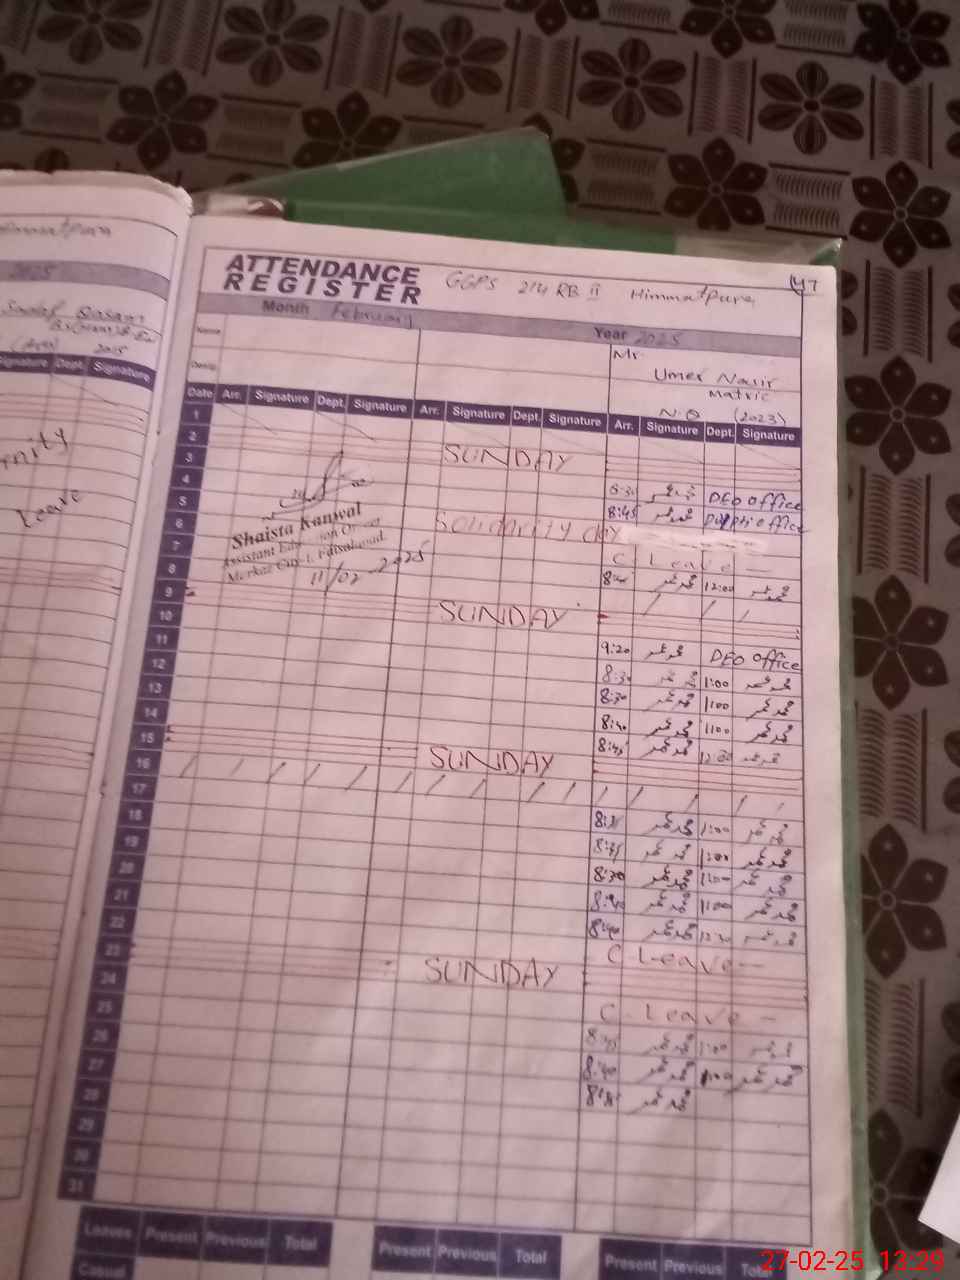 Himmatpura
2025
Sadaf Qasam
2015
Signature Dept. Signature
Leave
ATTENDANCE
REGISTER
GGPS 214 RB II Himmatpura
47
Month February
Year 2025
Name
Desig.
Mr.
Umer Nasir
Matric
N.Q (2023)
Date Arr. Signature Dept. Signature Arr. Signature Dept. Signature Arr. Signature Dept. Signature
1
2
SUNDAY
3
4
DEO office
5
8:45 office
6
Solidarity day
Shaista Kanwal
Assistant Education Officer
Markaz City-1, Faisalabad.
11/02 2025
7
C Leave —
8
8:40 محمد عمر 12:00 محمد عمر
9
SUNDAY
10
11
9:20 محمد عمر DEO office
12
8:30 محمد عمر 1:00 محمد عمر
13
8:30 محمد عمر 1:00 محمد عمر
14
8:40 محمد عمر 1:00 محمد عمر
15
8:45 محمد عمر 12:00 محمد عمر
16
SUNDAY
17
18
محمد عمر 1:00 محمد عمر
19
8:35 محمد عمر 1:00 محمد عمر
20
8:30 محمد عمر 1:00 محمد عمر
21
8:40 محمد عمر 1:00 محمد عمر
22
8:40 محمد عمر 12:30 محمد عمر
C Leave —
23
SUNDAY
24
25
C. Leave —
26
محمد عمر 1:00 محمد عمر
27
8:40 محمد عمر 1:00 محمد عمر
28
محمد عمر
29
30
31
Leaves Present Previous Total Present Previous Total Present Previous Total
Casual
27-02-25 13:29